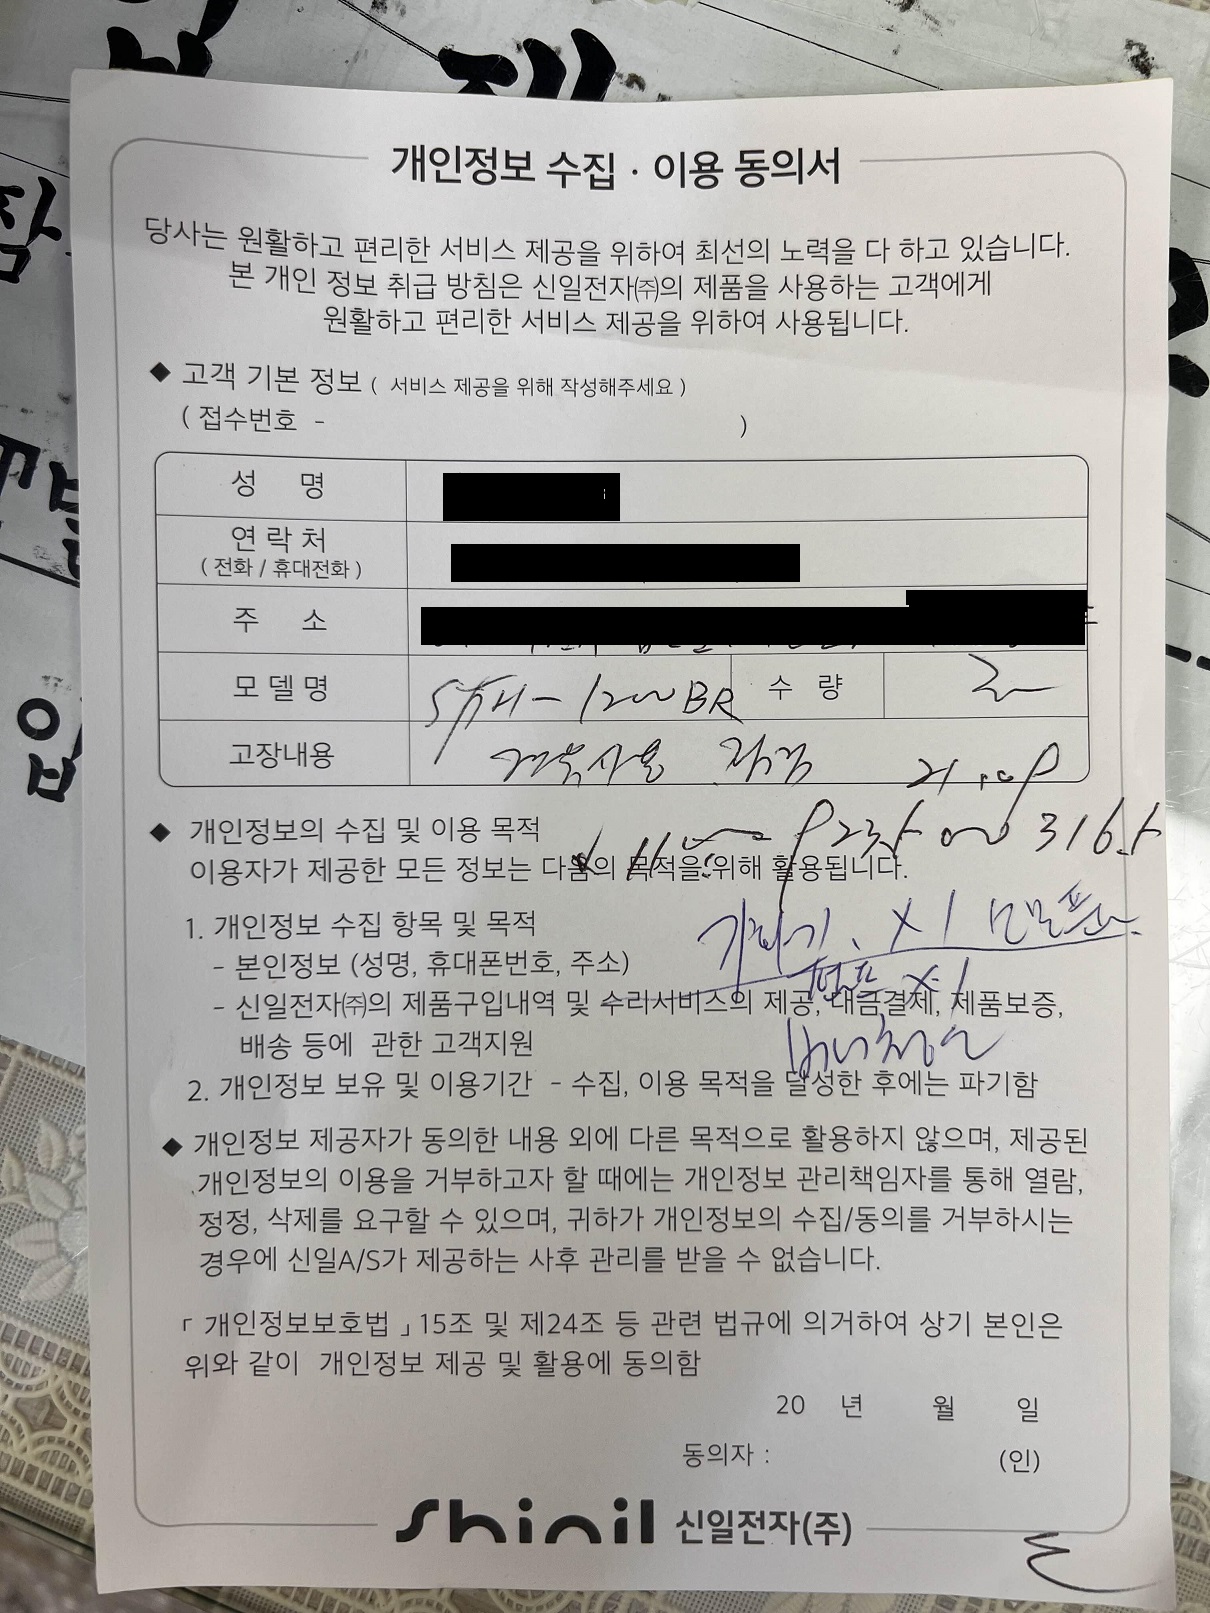 개인정보 수집 · 이용 동의서
당사는 원활하고 편리한 서비스 제공을 위하여 최선의 노력을 다 하고 있습니다.
본 개인 정보 취급 방침은 신일전자㈜의 제품을 사용하는 고객에게
원활하고 편리한 서비스 제공을 위하여 사용됩니다.
◆ 고객 기본 정보 ( 서비스 제공을 위해 작성해주세요 )
( 접수번호 - )
성 명
연락처
( 전화 / 휴대전화 )
주 소
모델명 1200BR 수 량 2
고장내용 점검
◆ 개인정보의 수집 및 이용 목적
이용자가 제공한 모든 정보는 다음의 목적을 위해 활용됩니다.
1. 개인정보 수집 항목 및 목적
- 본인정보 (성명, 휴대폰번호, 주소)
x1
- 신일전자㈜의 제품구입내역 및 수리서비스의 제공, 대금결제, 제품보증,
배송 등에 관한 고객지원
2. 개인정보 보유 및 이용기간 - 수집, 이용 목적을 달성한 후에는 파기함
◆ 개인정보 제공자가 동의한 내용 외에 다른 목적으로 활용하지 않으며, 제공된
개인정보의 이용을 거부하고자 할 때에는 개인정보 관리책임자를 통해 열람,
정정, 삭제를 요구할 수 있으며, 귀하가 개인정보의 수집/동의를 거부하시는
경우에 신일A/S가 제공하는 사후 관리를 받을 수 없습니다.
「 개인정보보호법 」15조 및 제24조 등 관련 법규에 의거하여 상기 본인은
위와 같이 개인정보 제공 및 활용에 동의함
20 년 월 일
동의자 : (인)
shinil 신일전자(주)
입